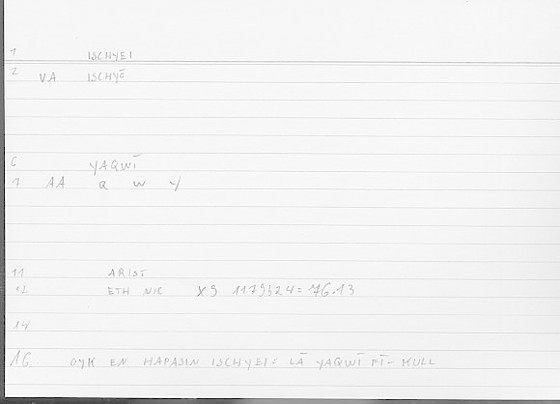 1 ISCHYEI
2 VA ISCHYŌ
6 YAQWĪ
7 AA Q W Y
11 ARIST
12 ETH NIC X9 1179b24 = 76.13
14
16 OYK EN HAPASIN ISCHYEI = LĀ YAQWĪ FĪ - KULL